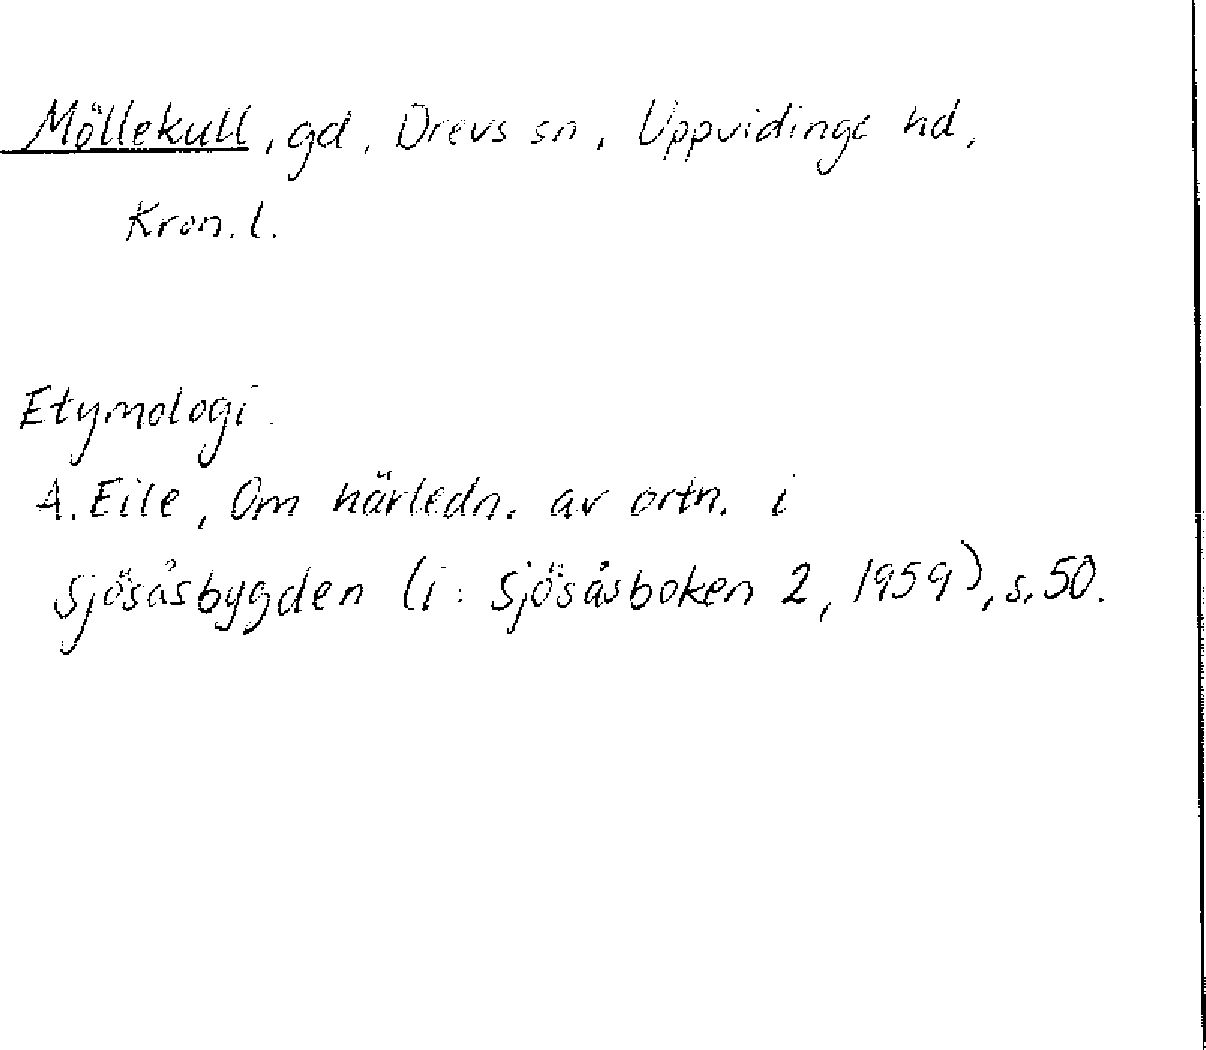 Möllekull, gd, Drevs sn, Uppvidinge hd,
Kron. l.
Etymologi.
A. Eile, Om härledn. av ortn. i
Sjösåsbygden (i: Sjösåsboken 2, 1959), s. 50.